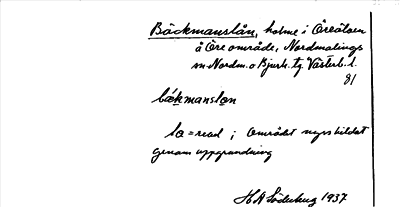 Bäckmanslån, holme i Öreälven
å Öre område, Nordmalings
sn Nordm. o Bjurh. tg. Västerb. l.
81
båkmanslon
lo = read ; området nyss bildat
genom uppgrundning
H A Söderberg 1937